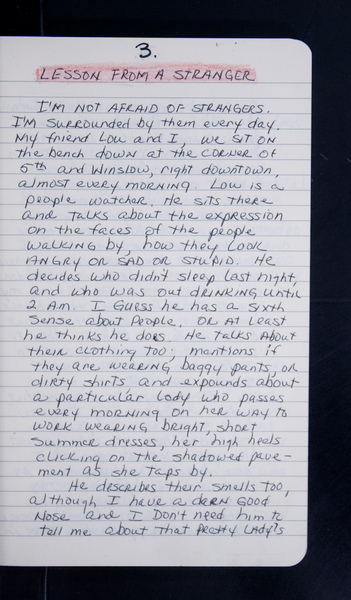 3.
LESSON FROM A STRANGER
I'M NOT AFRAID OF STRANGERS.
I'm surrounded by them every day.
My friend Lou and I, we sit on
the bench down at the corner of
5th and Winslow, right downtown,
almost every morning. Lou is a
people watcher. He sits there
and talks about the expression
on the faces of the people
walking by, how they look
angry or sad or stupid. He
decides who didn't sleep last night,
and who was out drinking until
2 Am. I Guess he has a sixth
sense about people, or at least
he thinks he does. He talks about
their clothing too; mentions if
they are wearing baggy pants, or
dirty shirts and expounds about
a particular lady who passes
every morning on her way to
work wearing bright, short
summer dresses, her high heels
clicking on the shadowed pave-
ment as she taps by.
He describes their smells too,
although I have a dern good
nose and I don't need him to
tell me about that pretty lady's